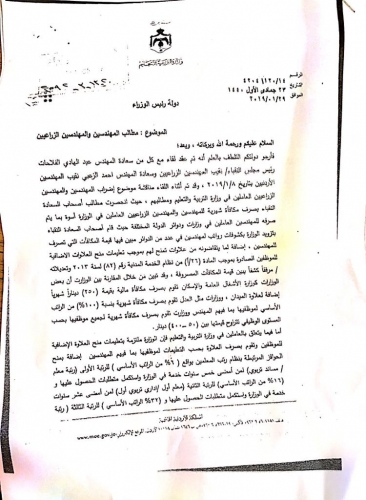 وزارة التربية والتعليم
الرقم ٤٢٠٤١/٢٠/١٤
التاريخ ٢٣ جمادى الأول ١٤٤٠
الموافق ٢٠١٩/٠١/٢٩
دولة رئيس الوزراء
الموضوع : مطالب المهندسين والمهندسين الزراعيين
السلام عليكم ورحمة الله وبركاته ، وبعد؛
فأرجو دولتكم التلطف بالعلم أنه تم عقد لقاء مع كل من سعادة المهندس عبد الهادي الفلاحات
رئيس مجلس النقباء/ نقيب المهندسين الزراعيين وسعادة المهندس احمد الزعبي نقيب المهندسين
الأردنيين بتاريخ ٢٠١٩/١/٨ ، وقد تم أثناء اللقاء مناقشة موضوع إضراب المهندسين والمهندسين
الزراعيين العاملين في وزارة التربية والتعليم ومطالبهم ، حيث انحصرت مطالب أصحاب السعادة
النقباء بصرف مكافأة شهرية للمهندسين والمهندسين الزراعيين العاملين في الوزارة أسوة بما يتم
صرفه للمهندسين العاملين في وزارات ودوائر الدولة المختلفة حيث قام أصحاب السعادة النقباء
بتزويد الوزارة بكشوفات رواتب لمهندسين في عدد من الدوائر مبين فيها قيمة المكافآت التي تصرف
للمهندسين ، إضافة لما يتقاضونه من علاوات تمنح لهم بموجب تعليمات منح العلاوات الإضافية
للموظفين الصادرة بموجب المادة (٢٦/أ) من نظام الخدمة المدنية رقم (٨٢) لسنة ٢٠١٣ وتعديلاته
(مرفقاً كشفاً يبين قيمة المكافآت المصروفة) ، وقد تبين من خلال المقارنة بين الوزارات أن بعض
الوزارات كوزارة الأشغال العامة والإسكان تقوم بصرف مكافأة مالية بقيمة (٢٥٠) ديناراً شهرياً
إضافة لعلاوة الميدان ، ووزارات مثل العدل تقوم بصرف مكافأة شهرية بنسبة (١٠٠%) من الراتب
الأساسي لموظفيها بما فيهم المهندسين ووزارات تقوم بصرف مكافأة شهرية لجميع موظفيها بحسب
المستوى الوظيفي تتراوح قيمتها بين (٥٠ – ٤٠٠) دينار.
أما فيما يتعلق بالعاملين في وزارة التربية والتعليم فإن الوزارة ملتزمة بتعليمات منح العلاوة الإضافية
للموظفين وتقوم بصرف العلاوة بحسب التعليمات لموظفيها بما فيهم المهندسين إضافة بمنح
الحوافز المرتبطة بنظام رتب المعلمين بواقع (٨% من الراتب الأساسي) للرتبة الأولى (رتبة معلم
/ مساند تربوي) لمن أمضى خمس سنوات خدمة في الوزارة واستكمل متطلبات الحصول عليها و
(١٦% من الراتب الأساسي) للرتبة الثانية (معلم أول /إداري تربوي أول) لمن أمضى عشر سنوات
خدمة في الوزارة واستكمل متطلبات الحصول عليها و (٣٢% الراتب الأساسي) للرتبة الثالثة (رتبة
المملكة الأردنية الهاشمية
www.moe.gov.jo